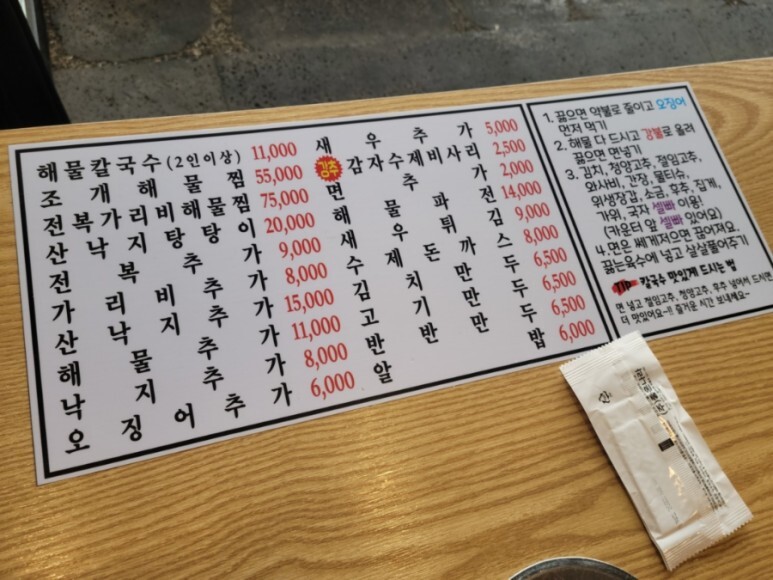 해물칼국수(2인이상) 11,000
조개해물찜 55,000
전복가리비해물찜 75,000
산낙지탕탕이 20,000
전복추가 9,000
가리비추가 8,000
산낙지추가 15,000
해물추가 11,000
낙지추가 8,000
오징어추가 6,000
새우추가 5,000
강추 감자수제비사리 2,500
면추가 2,000
해물파전 14,000
새우튀김 9,000
수제돈까스 8,000
김치만두 6,500
고기만두 6,500
반반만두 6,500
알밥 6,000
1. 끓으면 약불로 줄이고 오징어
먼저 먹기
2. 해물 다 드시고 강불로 올려
끓으면 면넣기
3. 김치, 청양고추, 절임고추,
와사비, 간장, 물티슈,
위생장갑, 소금, 후추, 집게,
가위, 국자 셀빠 이용!
(카운터 앞 셀빠 있어요)
4. 면은 쎄게저으면 끊어져요.
끓는육수에 넣고 살살풀어주기
TIP 칼국수 맛있게 드시는 법
면 넣고 절임고추, 청양고추, 후추 넣어서 드시면
더 맛있어요~!! 즐거운 시간 보내세요~